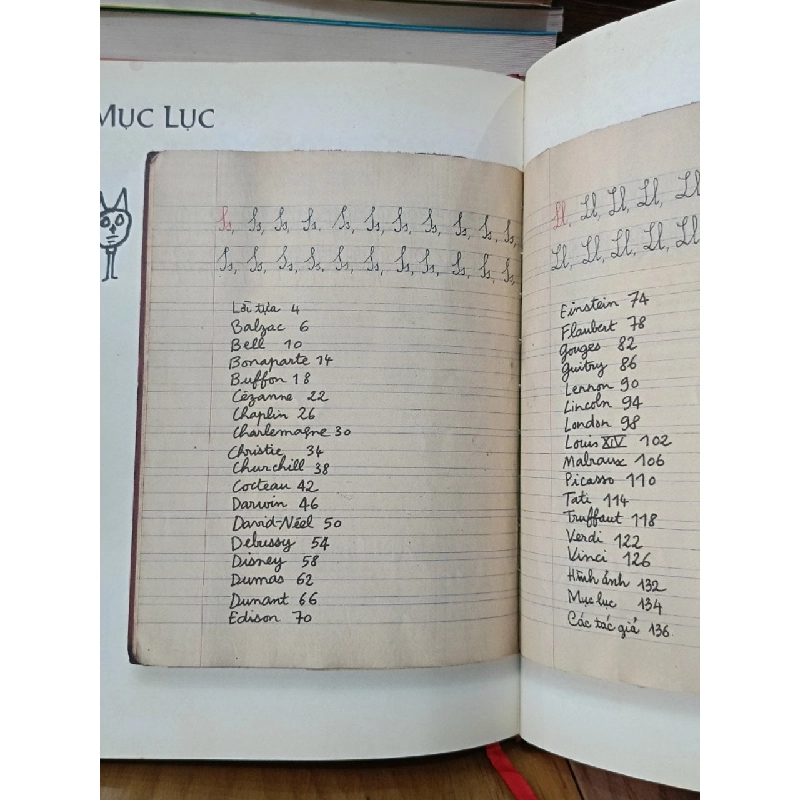 MỤC LỤC
Ss, Ss, Ss, Ss, Ss, Ss, Ss, Ss, Ss, Ss, Ss,
Ss, Ss, Ss, Ss, Ss, Ss, Ss, Ss, Ss, Ss, Ss,
Lời tựa 4
Balzac 6
Bell 10
Bonaparte 14
Buffon 18
Cézanne 22
Chaplin 26
Charlemagne 30
Christie 34
Churchill 38
Cocteau 42
Darwin 46
David-Néel 50
Debussy 54
Disney 58
Dumas 62
Dunant 66
Edison 70
Ll, Ll, Ll, Ll, Ll
Ll, Ll, Ll, Ll, Ll
Einstein 74
Flaubert 78
Gouges 82
Guitry 86
Lennon 90
Lincoln 94
London 98
Louis XIV 102
Malraux 106
Picasso 110
Tati 114
Truffaut 118
Verdi 122
Vinci 126
Hình ảnh 132
Mục lục 134
Các tác giả 136.